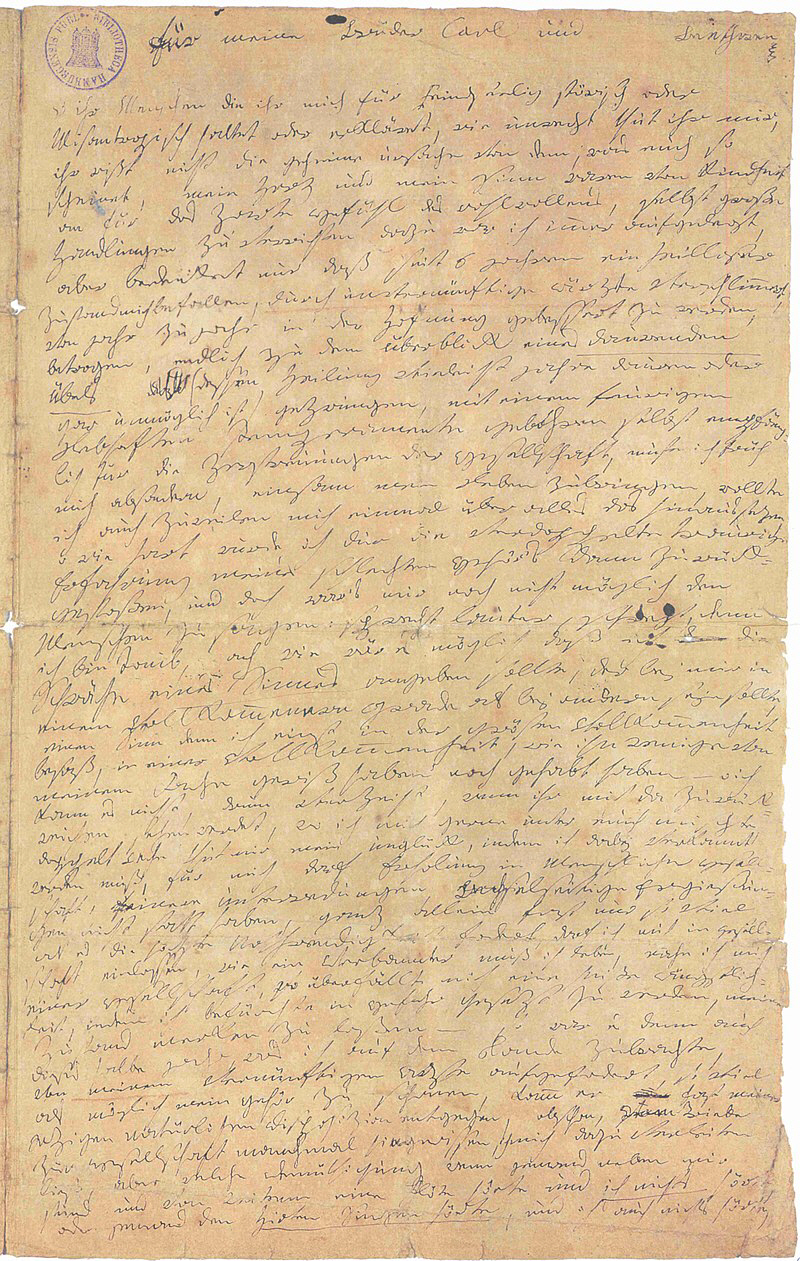 für meine Brüder Carl und Beethowen
o ihr Menschen die ihr mich für Feindseelig störisch oder
Misantropisch haltet oder erkläret, wie unrecht thut ihr mir,
ihr wißt nicht die geheime ursache von dem, was euch so
scheinet, mein Herz und mein Sinn waren von Kindheit
an für das Zarte Gefühl des wohlwollens, selbst große
Handlungen zu verrichten dazu war ich imer aufgelegt,
aber bedenket nur daß seit 6 jahren ein heilloser
Zustand mich befallen, durch unvernünftige ärzte verschlimert,
von jahr zu jahr in der Hofnung gebessert zu werden,
betrogen, endlich zu dem überblick eines daurenden
Übels (dessen Heilung vieleicht jahre dauren oder
gar unmöglich ist) gezwungen, mit einem feurigen
Lebhaften Temperamente gebohren selbst empfäng-
lich für die Zerstreuungen der Gesellschaft, muste ich früh
mich absondern, einsam mein Leben zubringen, wollte
ich auch zuweilen mich einmal über alles das hinaussezen,
o wie hart wurde ich dur die verdoppelte traurige
Erfahrung meines schlechten Gehör's dann zurück-
gestoßen, und doch war's mir noch nicht möglich den
Menschen zu sagen: sprecht lauter, schreyt, denn
ich bin taub, ach wie wär es möglich daß ich die
Schwäche eines Sinnes angeben sollte, der bej mir in
einem Vollkommenern Grade als bej andern sejn sollte
einen Sinn denn ich einst in der grösten Vollkommenheit
besaß, in einer Vollkommenheit, wie ihn wenige von
meinem Fache gewiß haben noch gehabt haben – o ich
kann es nicht, drum verzeiht, wenn ihr mich da zurück-
weichen sehen werdet, wo ich mich gerne unter euch mischte
doppelt wehe thut mir mein unglück, indem ich dabej verkannt
werden muß, für mich darf Erholung in Menschlicher Gesell-
schaft, feinere unterredungen, wechselseitige Ergießun-
gen nicht statt haben, ganz allein fast nur so viel
als es die höchste Nothwendigkeit fodert, darf ich mich in gesell-
schaft einlassen, wie ein Verbannter muß ich leben, nahe ich mich
einer Gesellschaft, so überfällt mich eine heiße ängstlich-
keit, indem ich befürchte in Gefahr gesezt zu werden, meinen
Zustand merken zu laßen – so war es denn auch
dieses halbe jahr, was ich auf dem Lande zubrachte,
von meinem vernünftigen Arzte aufgefodert, so viel
als möglich mein Gehör zu schonen, kamm er fast meiner
jezigen natürlichen Disposizion entgegen, obschon, Vom Triebe
zur Gesellschaft manchmal hingerissen, ich mich dazu verleiten
ließ, aber welche Demüthigung wenn jemand neben mir
stund und von weitem eine Flöte hörte und ich nichts hörte
oder jemand den Hirten Singen hörte, und ich auch nichts hörte,